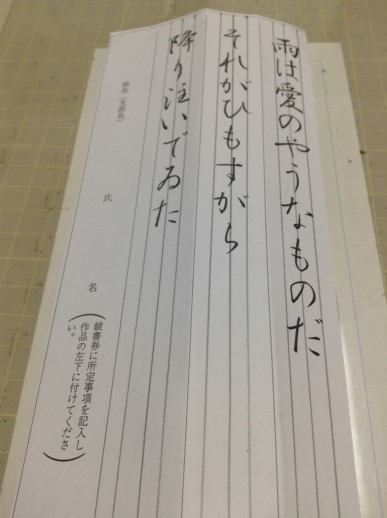 雨は愛のやうなものだ
それがひもすがら
降り注いでゐた
県名(支部名)
氏
名
(競書券に所定事項を記入し
作品の左下に付けてくださ
い。)